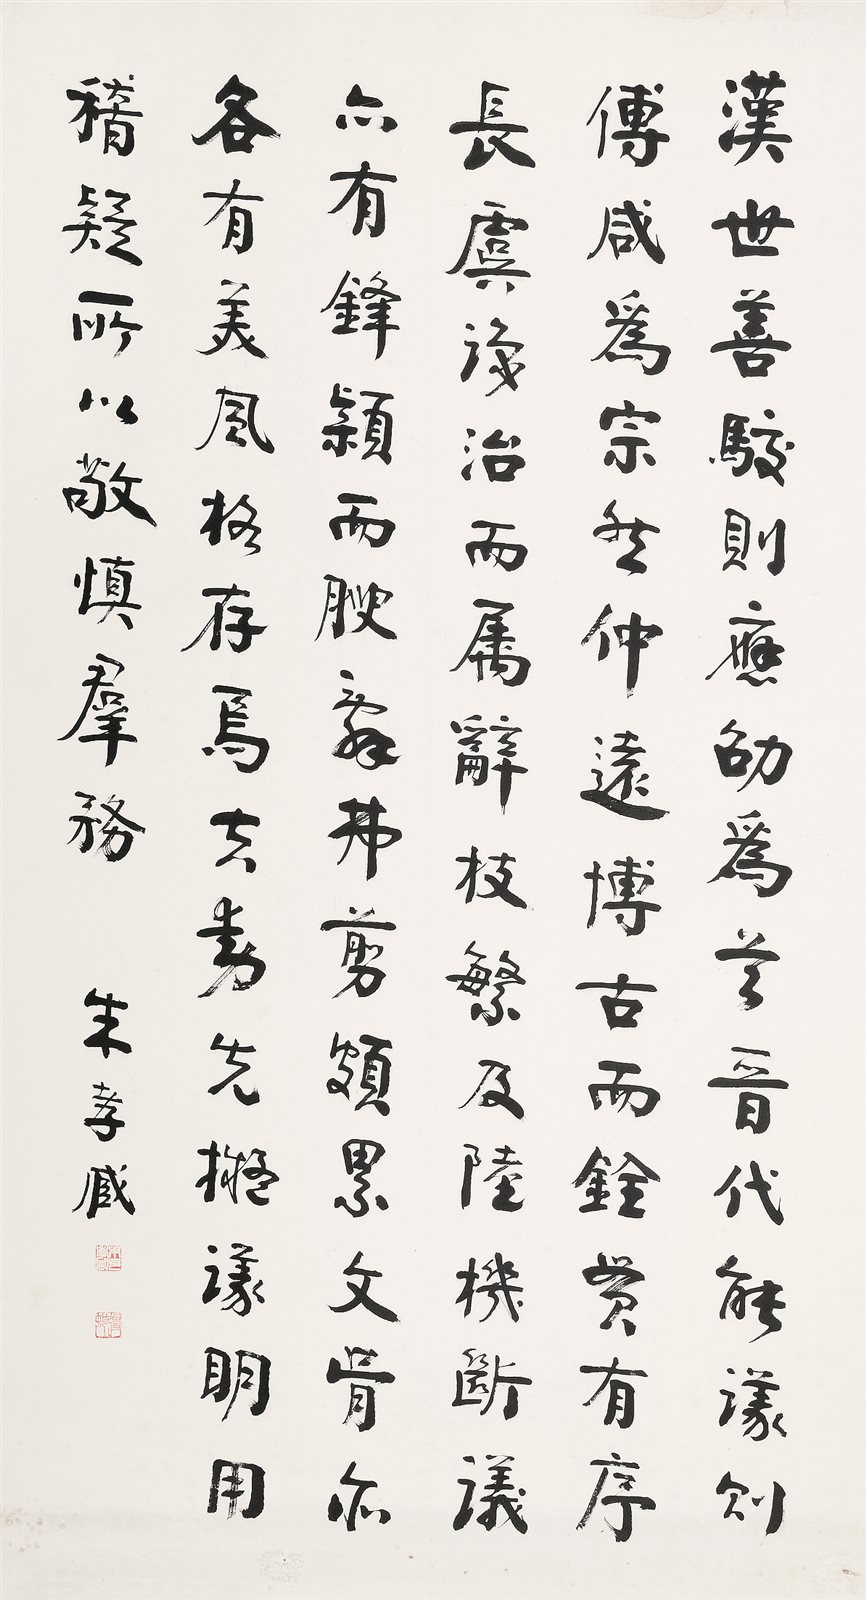 漢世善駮則應劭爲首晉代能議則
傅咸爲宗然仲遠博古而銓貫有序
長虞識治而屬辭枝繁及陸機斷議
亦有鋒穎而腴辭弗剪頗累文骨亦
各有美風格存焉夫動先擬議明用
稽疑所以敬慎羣務 朱孝臧